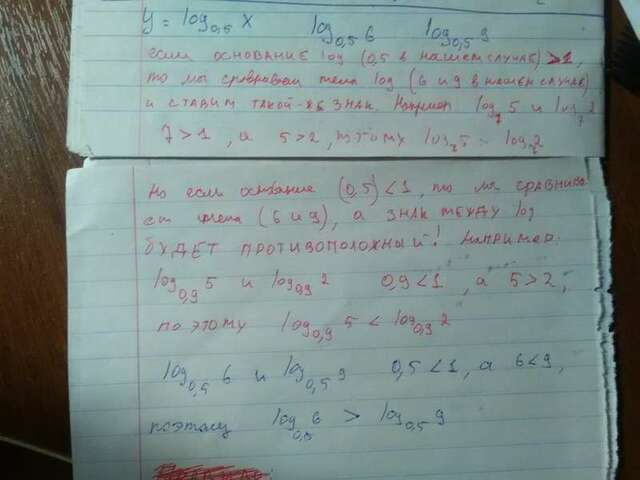 y = log₀,₅ x log₀,₅ 6 log₀,₅ 9
если основание log (0,5 в нашем случае) > 1,
то мы сравниваем тела log (6 и 9 в нашем случае)
и ставим такой-же знак. Например log₇ 5 и log₇ 2
7 > 1, а 5 > 2, поэтому log₇ 5 log₇ 2
Но если основание (0,5) < 1, то мы сравнива
ем тела (6 и 9), а знак между log
будет противоположный! Например:
log₀,₉ 5 и log₀,₉ 2 0,9 < 1, а 5 > 2,
поэтому log₀,₉ 5 < log₀,₉ 2
log₀,₅ 6 и log₀,₅ 9 0,5 < 1, а 6 < 9,
поэтому log₀,₅ 6 > log₀,₅ 9